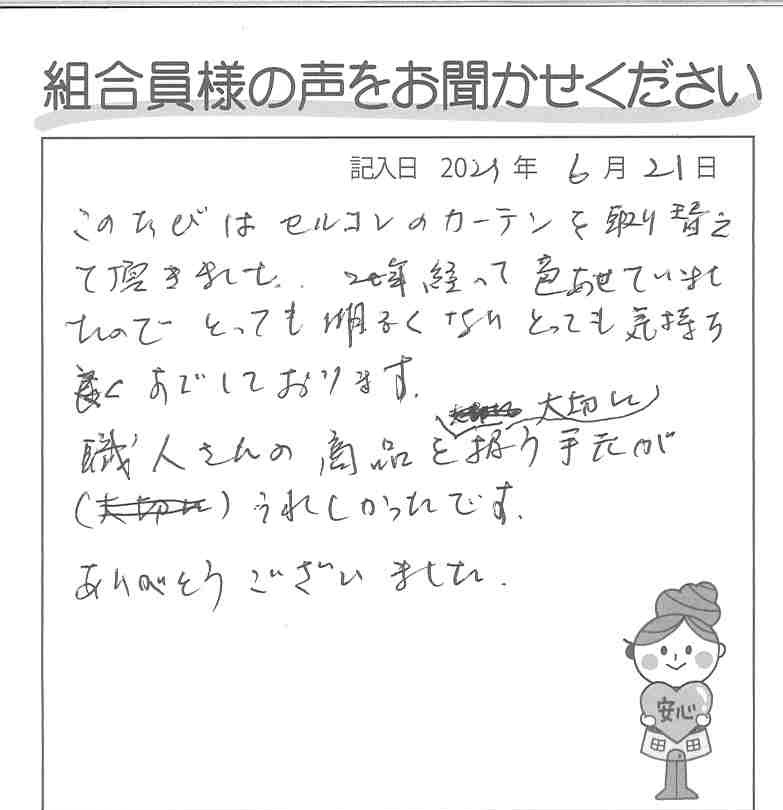 組合員様の声をお聞かせください
記入日 2021年 6月21日
このたびは セルコンのカーテンを取り替え
て頂きました. 経って色あせていまし
たので とっても明るくなり とっても気持ち
良くすごしております.
大切に
職人さんの商品を扱う手元が
(大切に) うれしかったです.
ありがとうございました.
安心